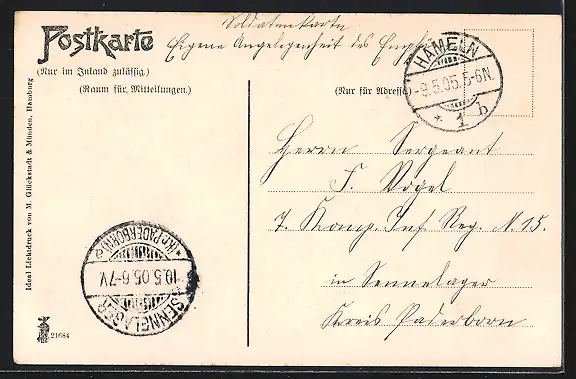 Soldatenkarte
Postkarte
Eigene Angelegenheit des Empf.
(Nur im Inland zulässig.)
(Raum für Mitteilungen.)
(Nur für Adresse)
HAMELN
-9.5.05.5-6N.
* 1 b
Herrn Sergeant
F. Vogel
7. Komp. Inf. Reg. N. 15.
in Sennelager
Kreis Paderborn
SENNELAGER
10.5.05.6-7V.
*(Kr. PADERBORN)*
Ideal Lichtdruck von M. Glückstadt & Münden, Hamburg
21684